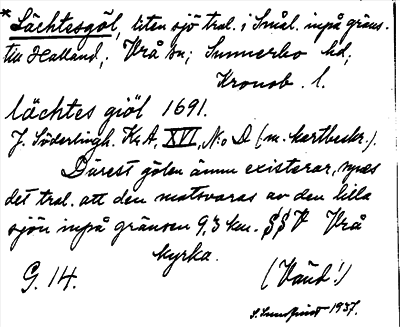 *Lächtesgöl, liten sjö trol. i Smål. inpå gräns.
till Halland,. Vrå sn; Sunnerbo hd,
Kronob. l.
lächtes giöl 1691.
J. Söderlingh. K.A. XVI, N:o D (m. kartbeskr.).
Därest gölen ännu existerar, synes
det trol. att den motsvaras av den lilla
sjön inpå gränsen 9,3 km. SSV Vrå
kyrka.
G. 14. (Vänd!)
1937.